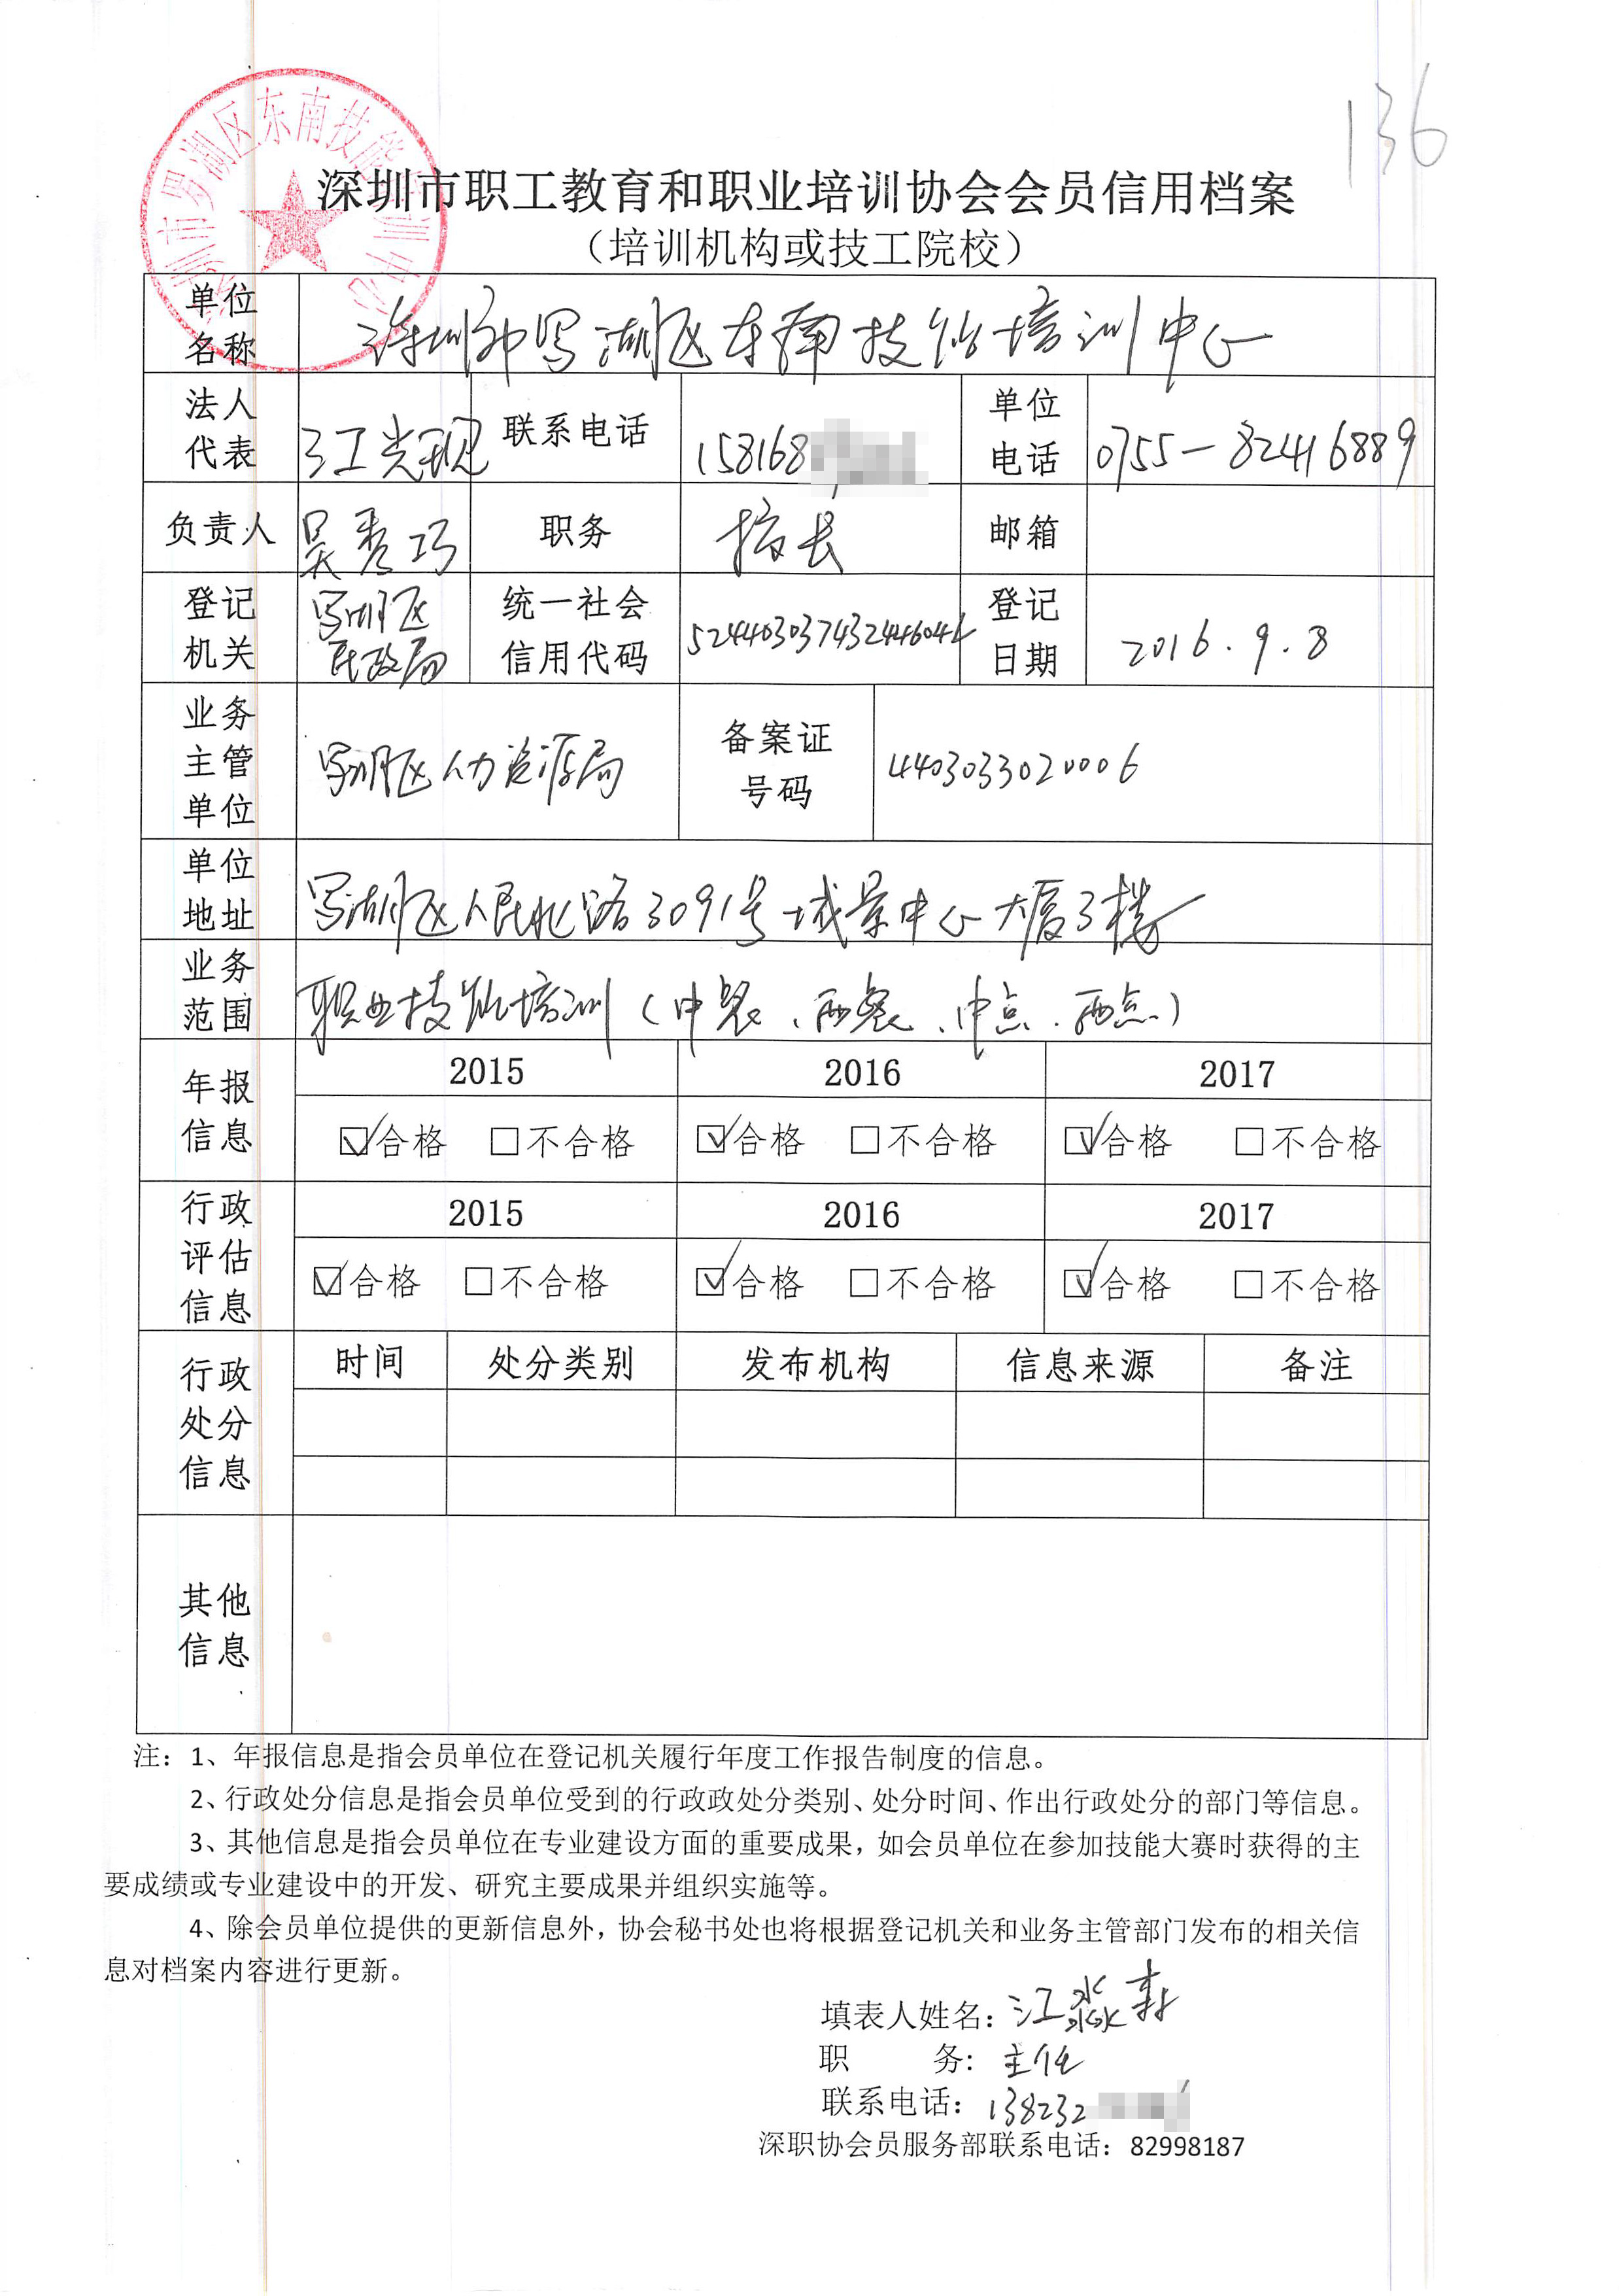 136
深圳市罗湖区东南技能培训中心
深圳市职工教育和职业培训协会会员信用档案
（培训机构或技工院校）
单位名称 深圳市罗湖区东南技能培训中心
法人代表 江光现 联系电话 158168 单位电话 0755-82416889
负责人 吴秀巧 职务 校长 邮箱
登记机关 罗湖区民政局 统一社会信用代码 登记日期 2016.9.8
业务主管单位 罗湖区人力资源局 备案证号码 4403033020006
单位地址 罗湖区人民北路3091号城景中心大厦3楼
业务范围 职业技能培训（中餐、西餐、中点、西点）
年报信息 2015 2016 2017
☑合格 □不合格 ☑合格 □不合格 ☑合格 □不合格
行政评估信息 2015 2016 2017
☑合格 □不合格 ☑合格 □不合格 ☑合格 □不合格
行政处分信息 时间 处分类别 发布机构 信息来源 备注
其他信息
注：1、年报信息是指会员单位在登记机关履行年度工作报告制度的信息。
2、行政处分信息是指会员单位受到的行政政处分类别、处分时间、作出行政处分的部门等信息。
3、其他信息是指会员单位在专业建设方面的重要成果，如会员单位在参加技能大赛时获得的主
要成绩或专业建设中的开发、研究主要成果并组织实施等。
4、除会员单位提供的更新信息外，协会秘书处也将根据登记机关和业务主管部门发布的相关信
息对档案内容进行更新。
填表人姓名：江淼
职 务：主任
联系电话：138232
深职协会员服务部联系电话：82998187